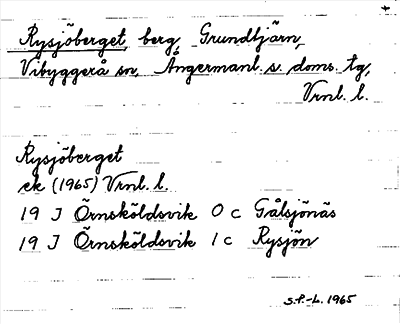 Rysjöberget, berg, Grundtjärn,
Vibyggerå sn, Ångermanl. s. doms. tg,
Vrnl. l.
Rysjöberget
ek (1965) Vrnl. l.
19 J Örnsköldsvik 0 c Gålsjönäs
19 J Örnsköldsvik 1 c Rysjön
S.P.-L. 1965